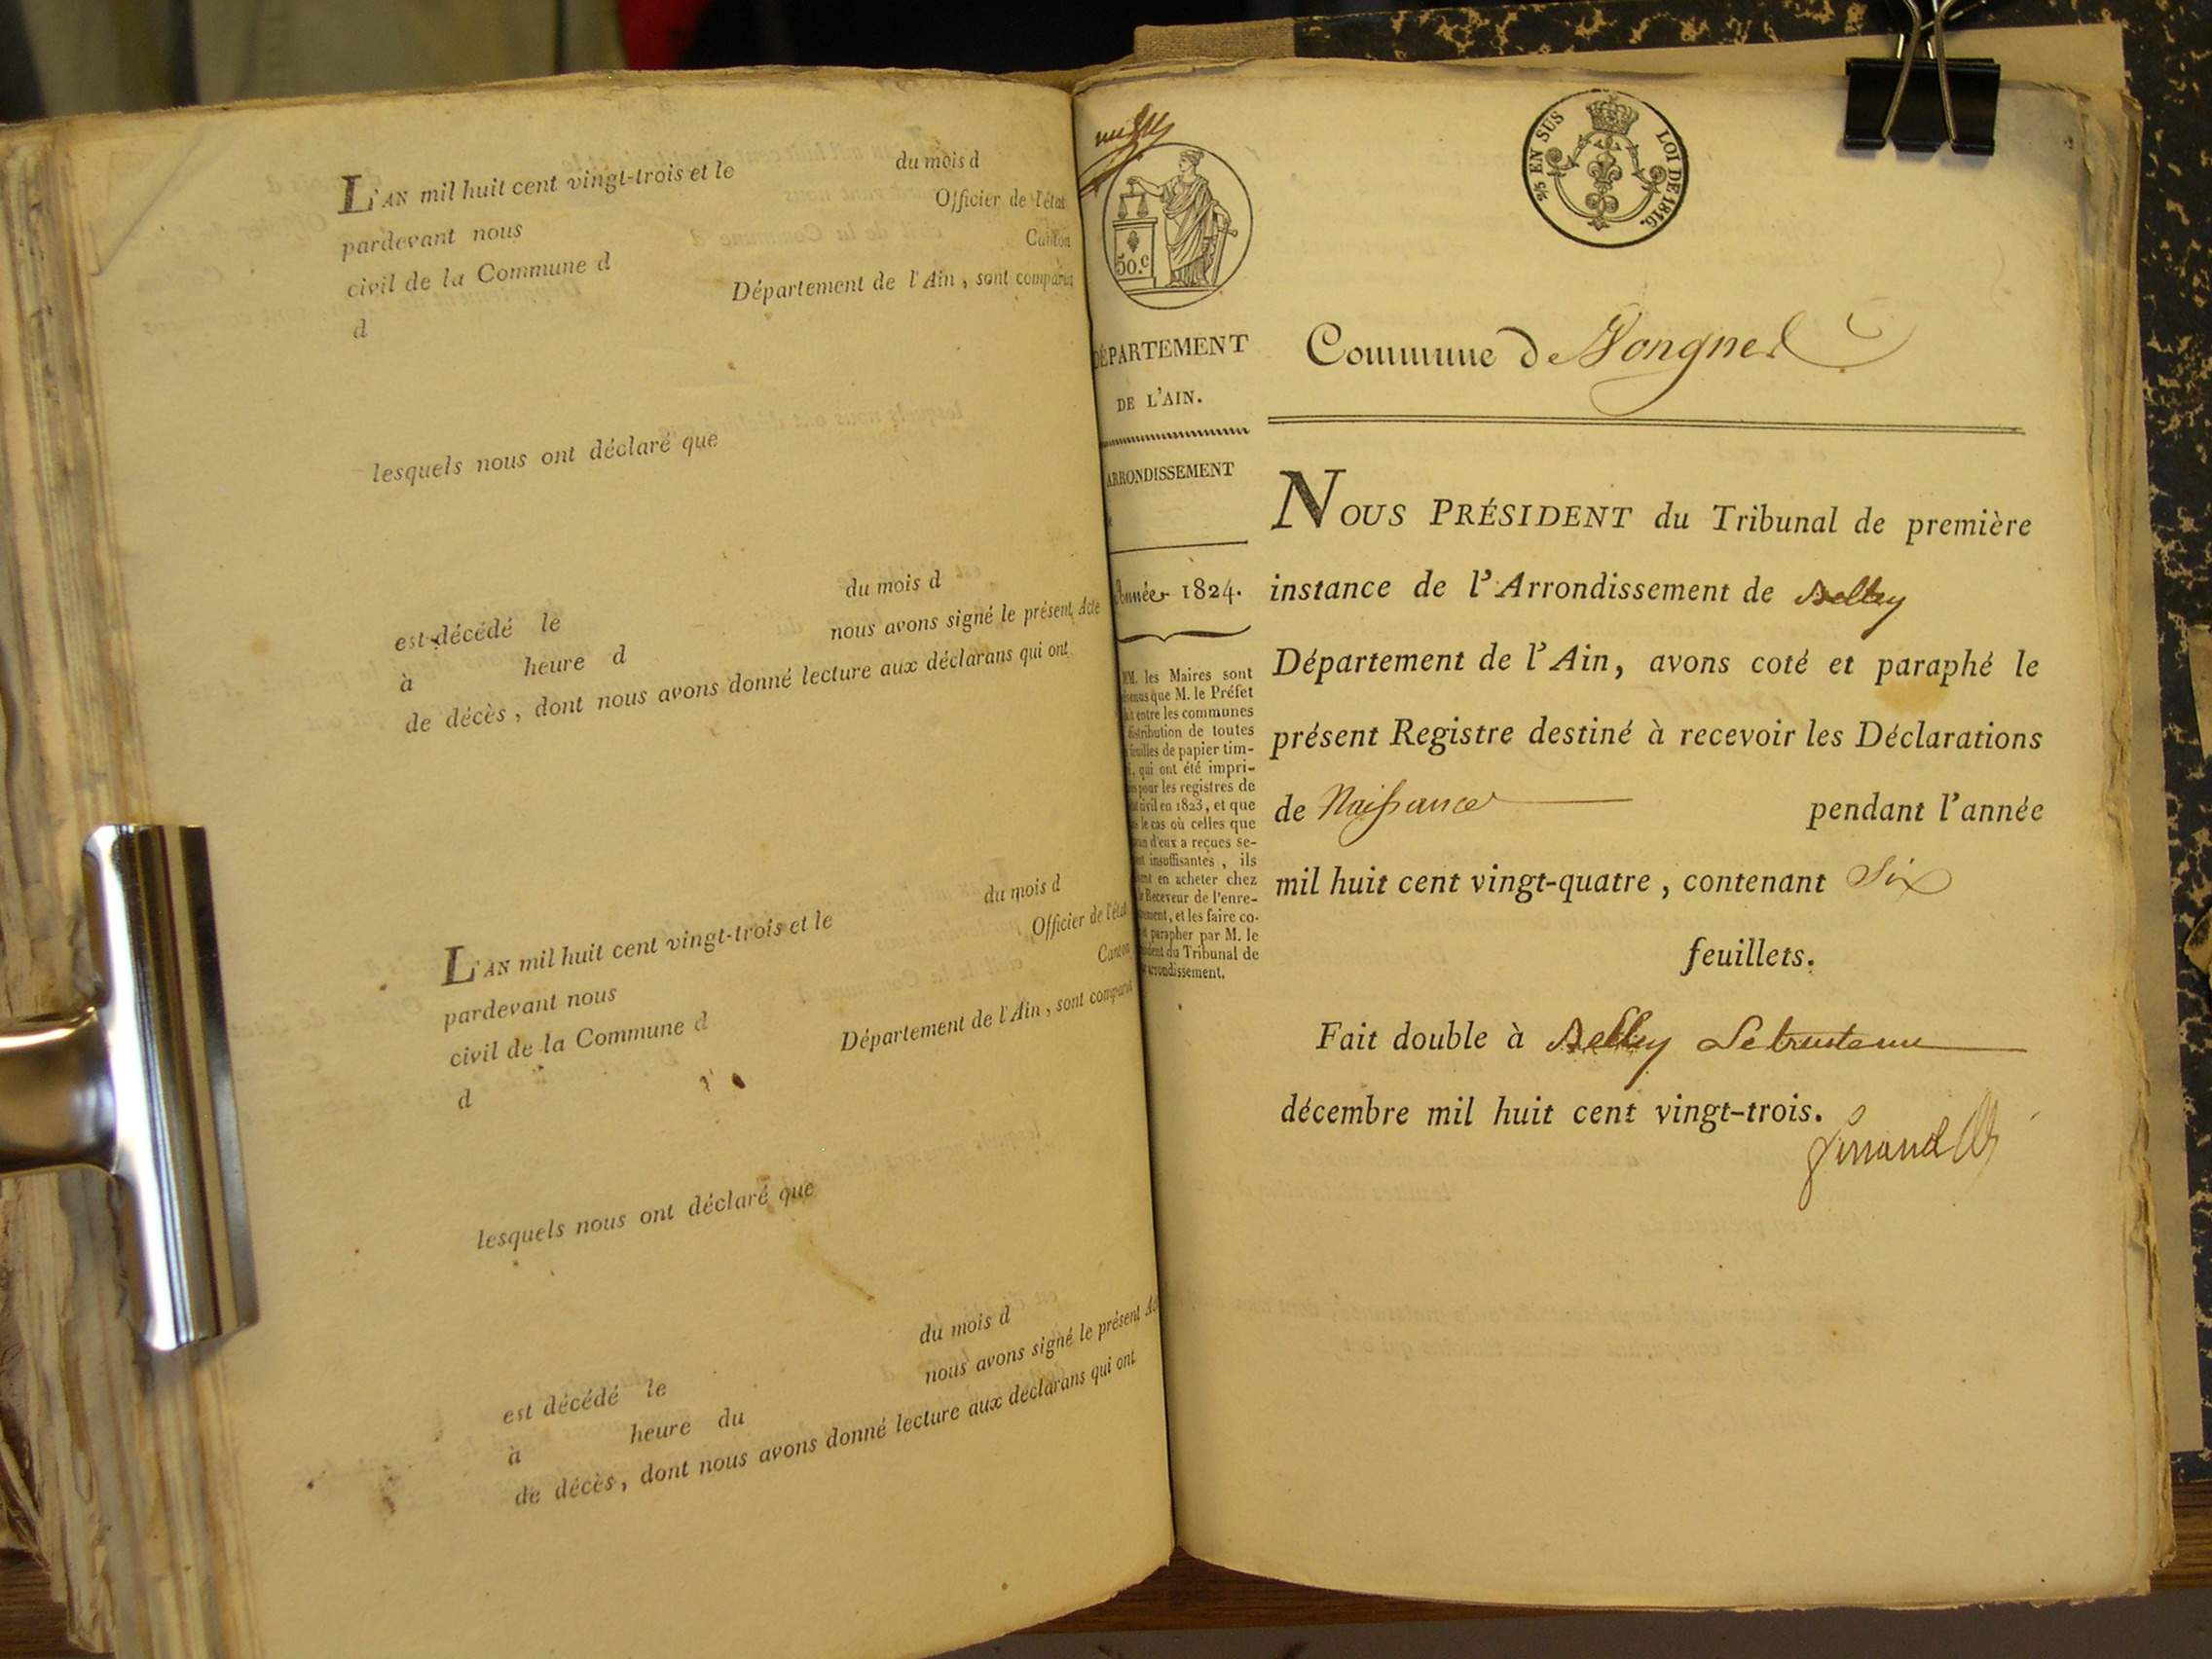 L'AN mil huit cent vingt-trois et le du mois d
pardevant nous Officier de l'état
civil de la Commune d Canton
d Département de l'Ain, sont comparus
lesquels nous ont déclaré que
est décédé le du mois d
à heure d nous avons signé le présent Acte
de décès, dont nous avons donné lecture aux déclarans qui ont
L'AN mil huit cent vingt-trois et le du mois d
pardevant nous Officier de l'état
civil de la Commune d Canton
d Département de l'Ain, sont comparus
lesquels nous ont déclaré que
est décédé le du mois d
à heure du nous avons signé le présent
de décès, dont nous avons donné lecture aux declarans qui ont
50.c
⅖ EN SUS LOI DE 1816.
DÉPARTEMENT
DE L'AIN.
ARRONDISSEMENT
Année 1824.
MM. les Maires sont
que M. le Préfet
entre les communes
distribution de toutes
feuilles de papier tim-
qui ont été impri-
pour les registres de
civil en 1823, et que
le cas où celles que
d'eux a reçues se-
insuffisantes, ils
en acheter chez
Receveur de l'enre-
et les faire co-
parapher par M. le
du Tribunal de
arrondissement.
Commune de Vongnes
NOUS PRÉSIDENT du Tribunal de première
instance de l'Arrondissement de Belley
Département de l'Ain, avons coté et paraphé le
présent Registre destiné à recevoir les Déclarations
de Naissance pendant l'année
mil huit cent vingt-quatre, contenant Six
feuillets.
Fait double à Belley Le trente un
décembre mil huit cent vingt-trois.